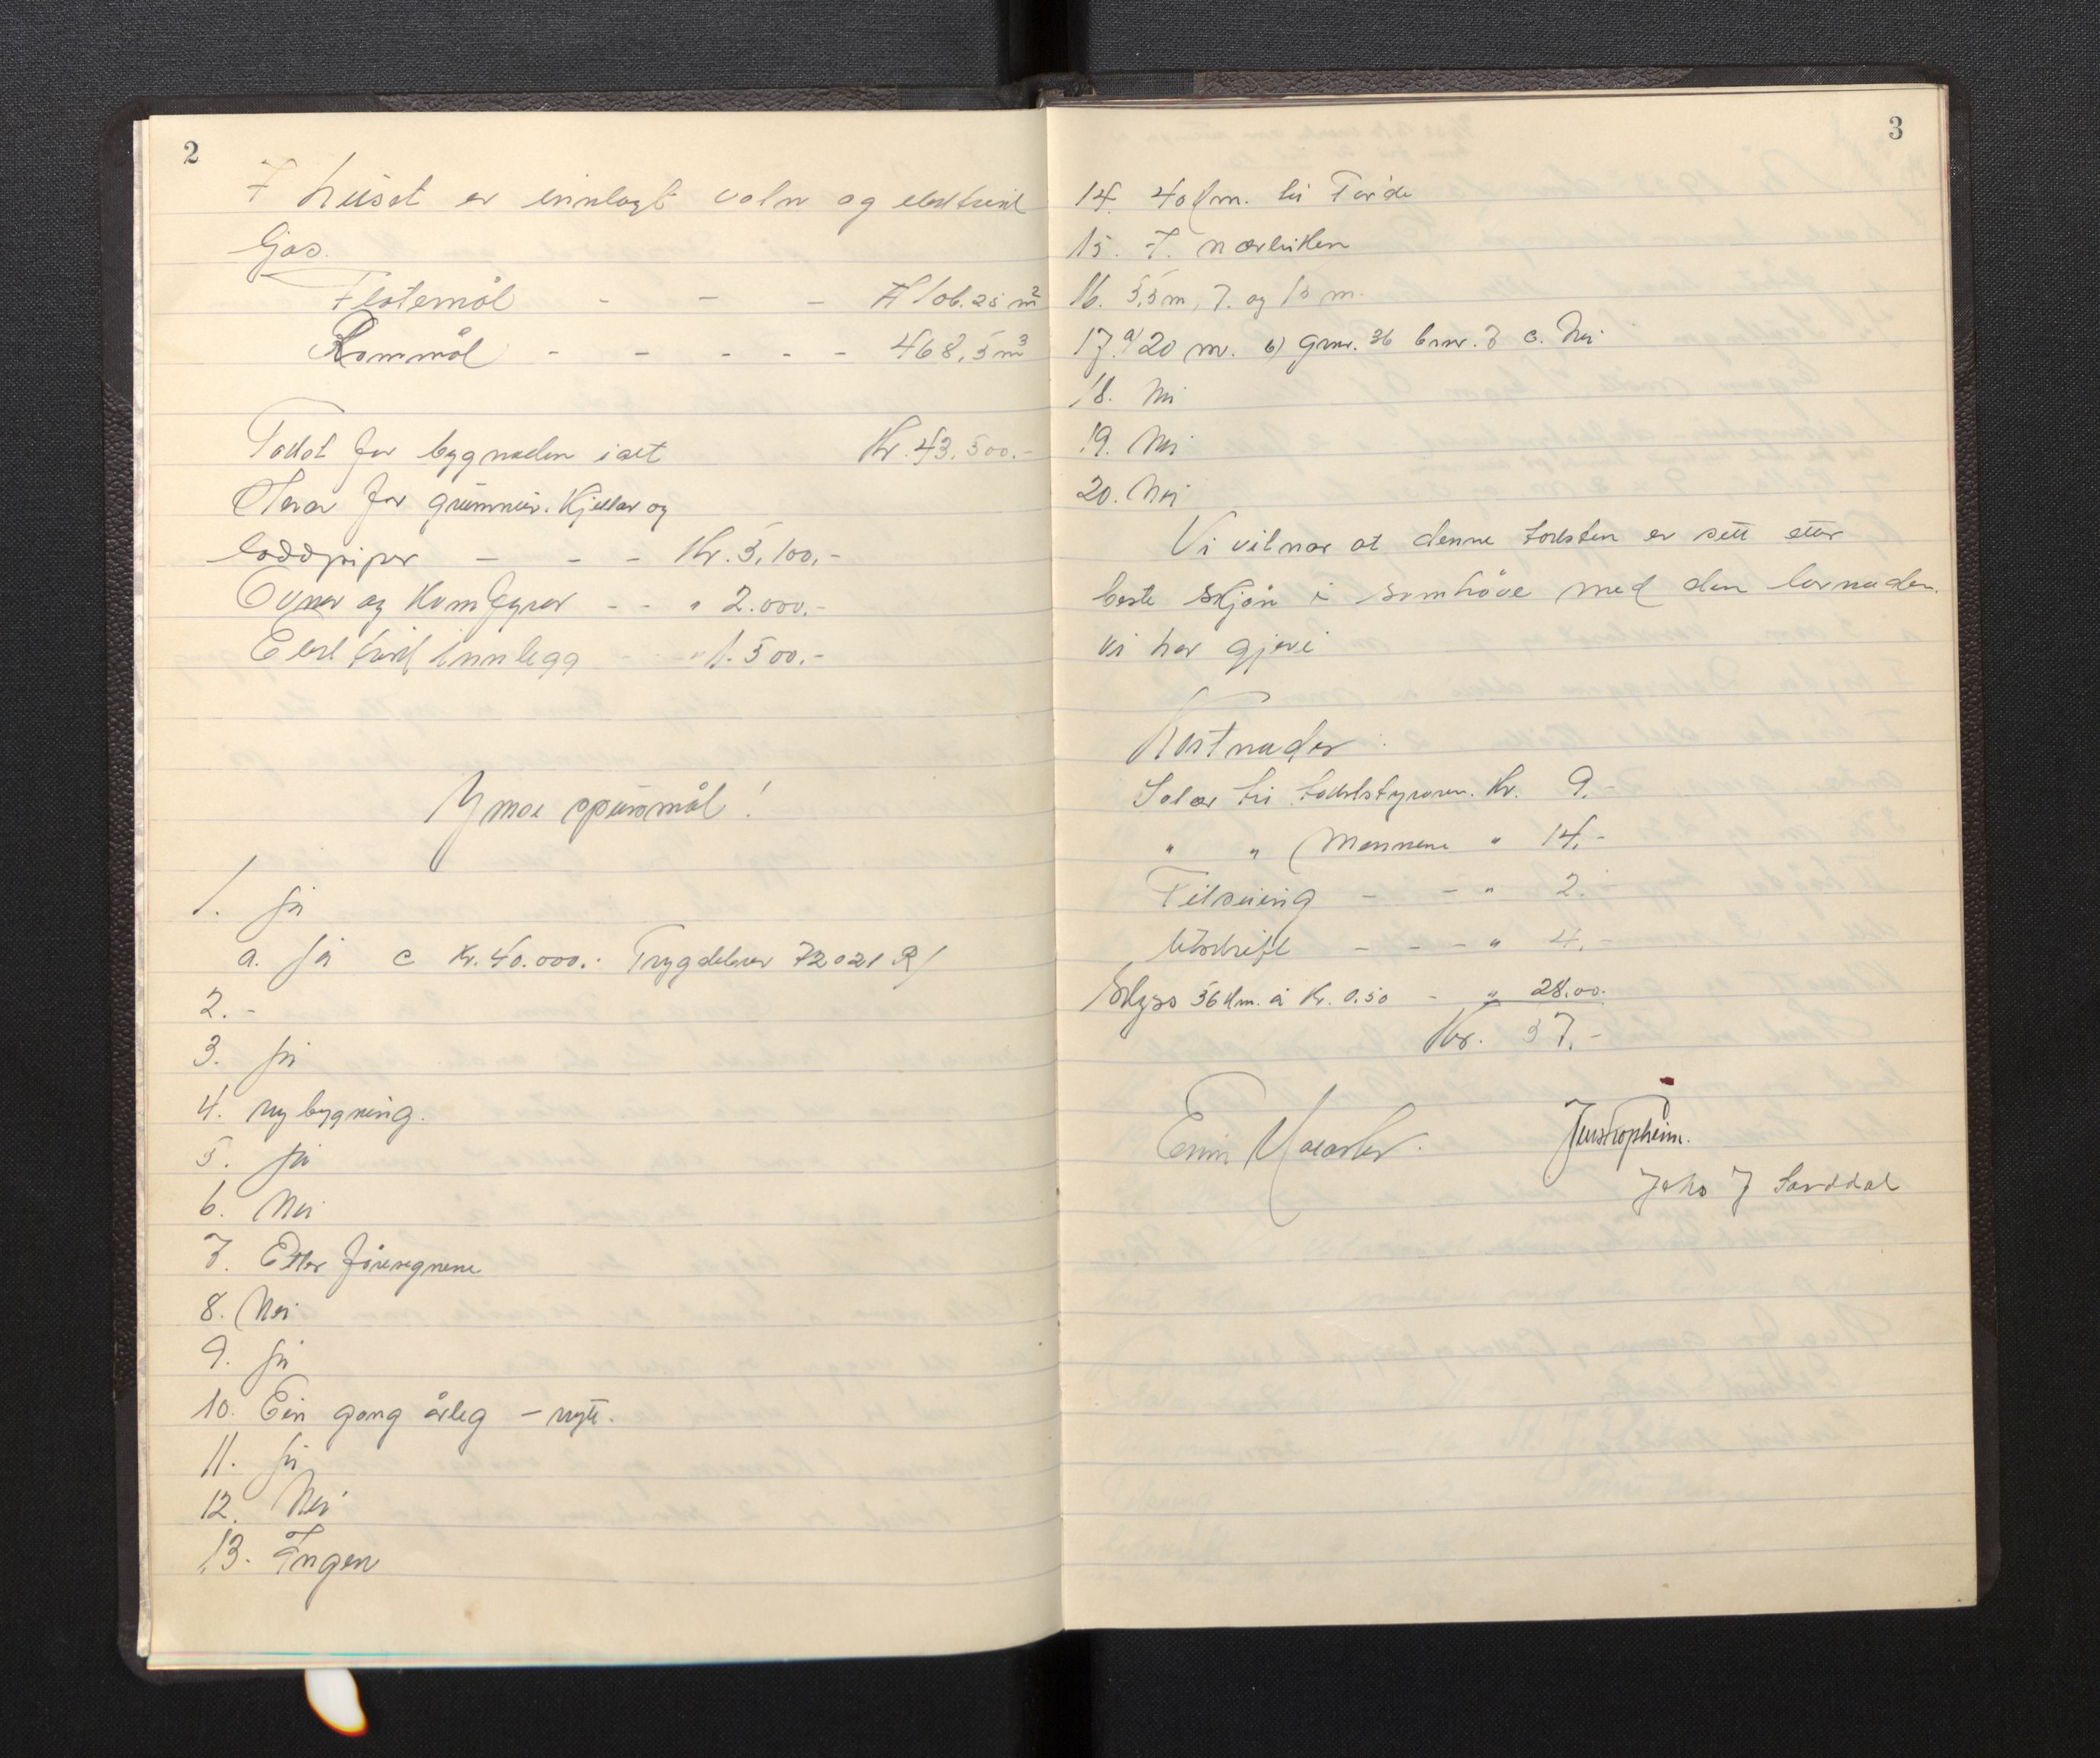 2
I huset er innlagt vatn og elektrisk
ljos.
Flatemål - - - 106.25 m²
Rommål - - - - - 468,5 m³
Takst for bygnaden i alt Kr. 43,500.-
Herav for grunnmur. Kjellar og
loddpipor - - - Kr. 3,100,-
Ovnar og Komfyrar - - " 2.000.-
Elektrisk innlegg - - " 1.500.-
Ymse spursmål!
1. Ja
a. Ja c Kr. 40.000.- Trygdebrev 72021 R/
2. -
3. Ja
4. nybygning.
5. Ja
6. Nei
7. Etter føresegnene
8. Nei
9. Ja
10. Ein gong årleg - nytt.
11. Ja
12. Nei
13. Ingen
3
14. 40 km. til Førde
15. I nærleiken
16. 5,5 m, 7. og 15 m.
17. a/ 20 m. b) Gnr. 36 bnr. 7 c. Nei
18. Nei
19. Nei
20. Nei
Vi vitnar at denne taksten er sett etter
beste skjøn i samhøve med den lovnaden
vi har gjeve
Kostnader:
Salær til takststyraren. Kr. 9.-
" " Mennene " 14.-
Tilsuing - - " 2.
Utskrift - - - " 4.-
Skyss 56 km. à Kr. 0.50 - " 28.00.
Kr. 57.-
Jens Hopheim.
J. Sanddal